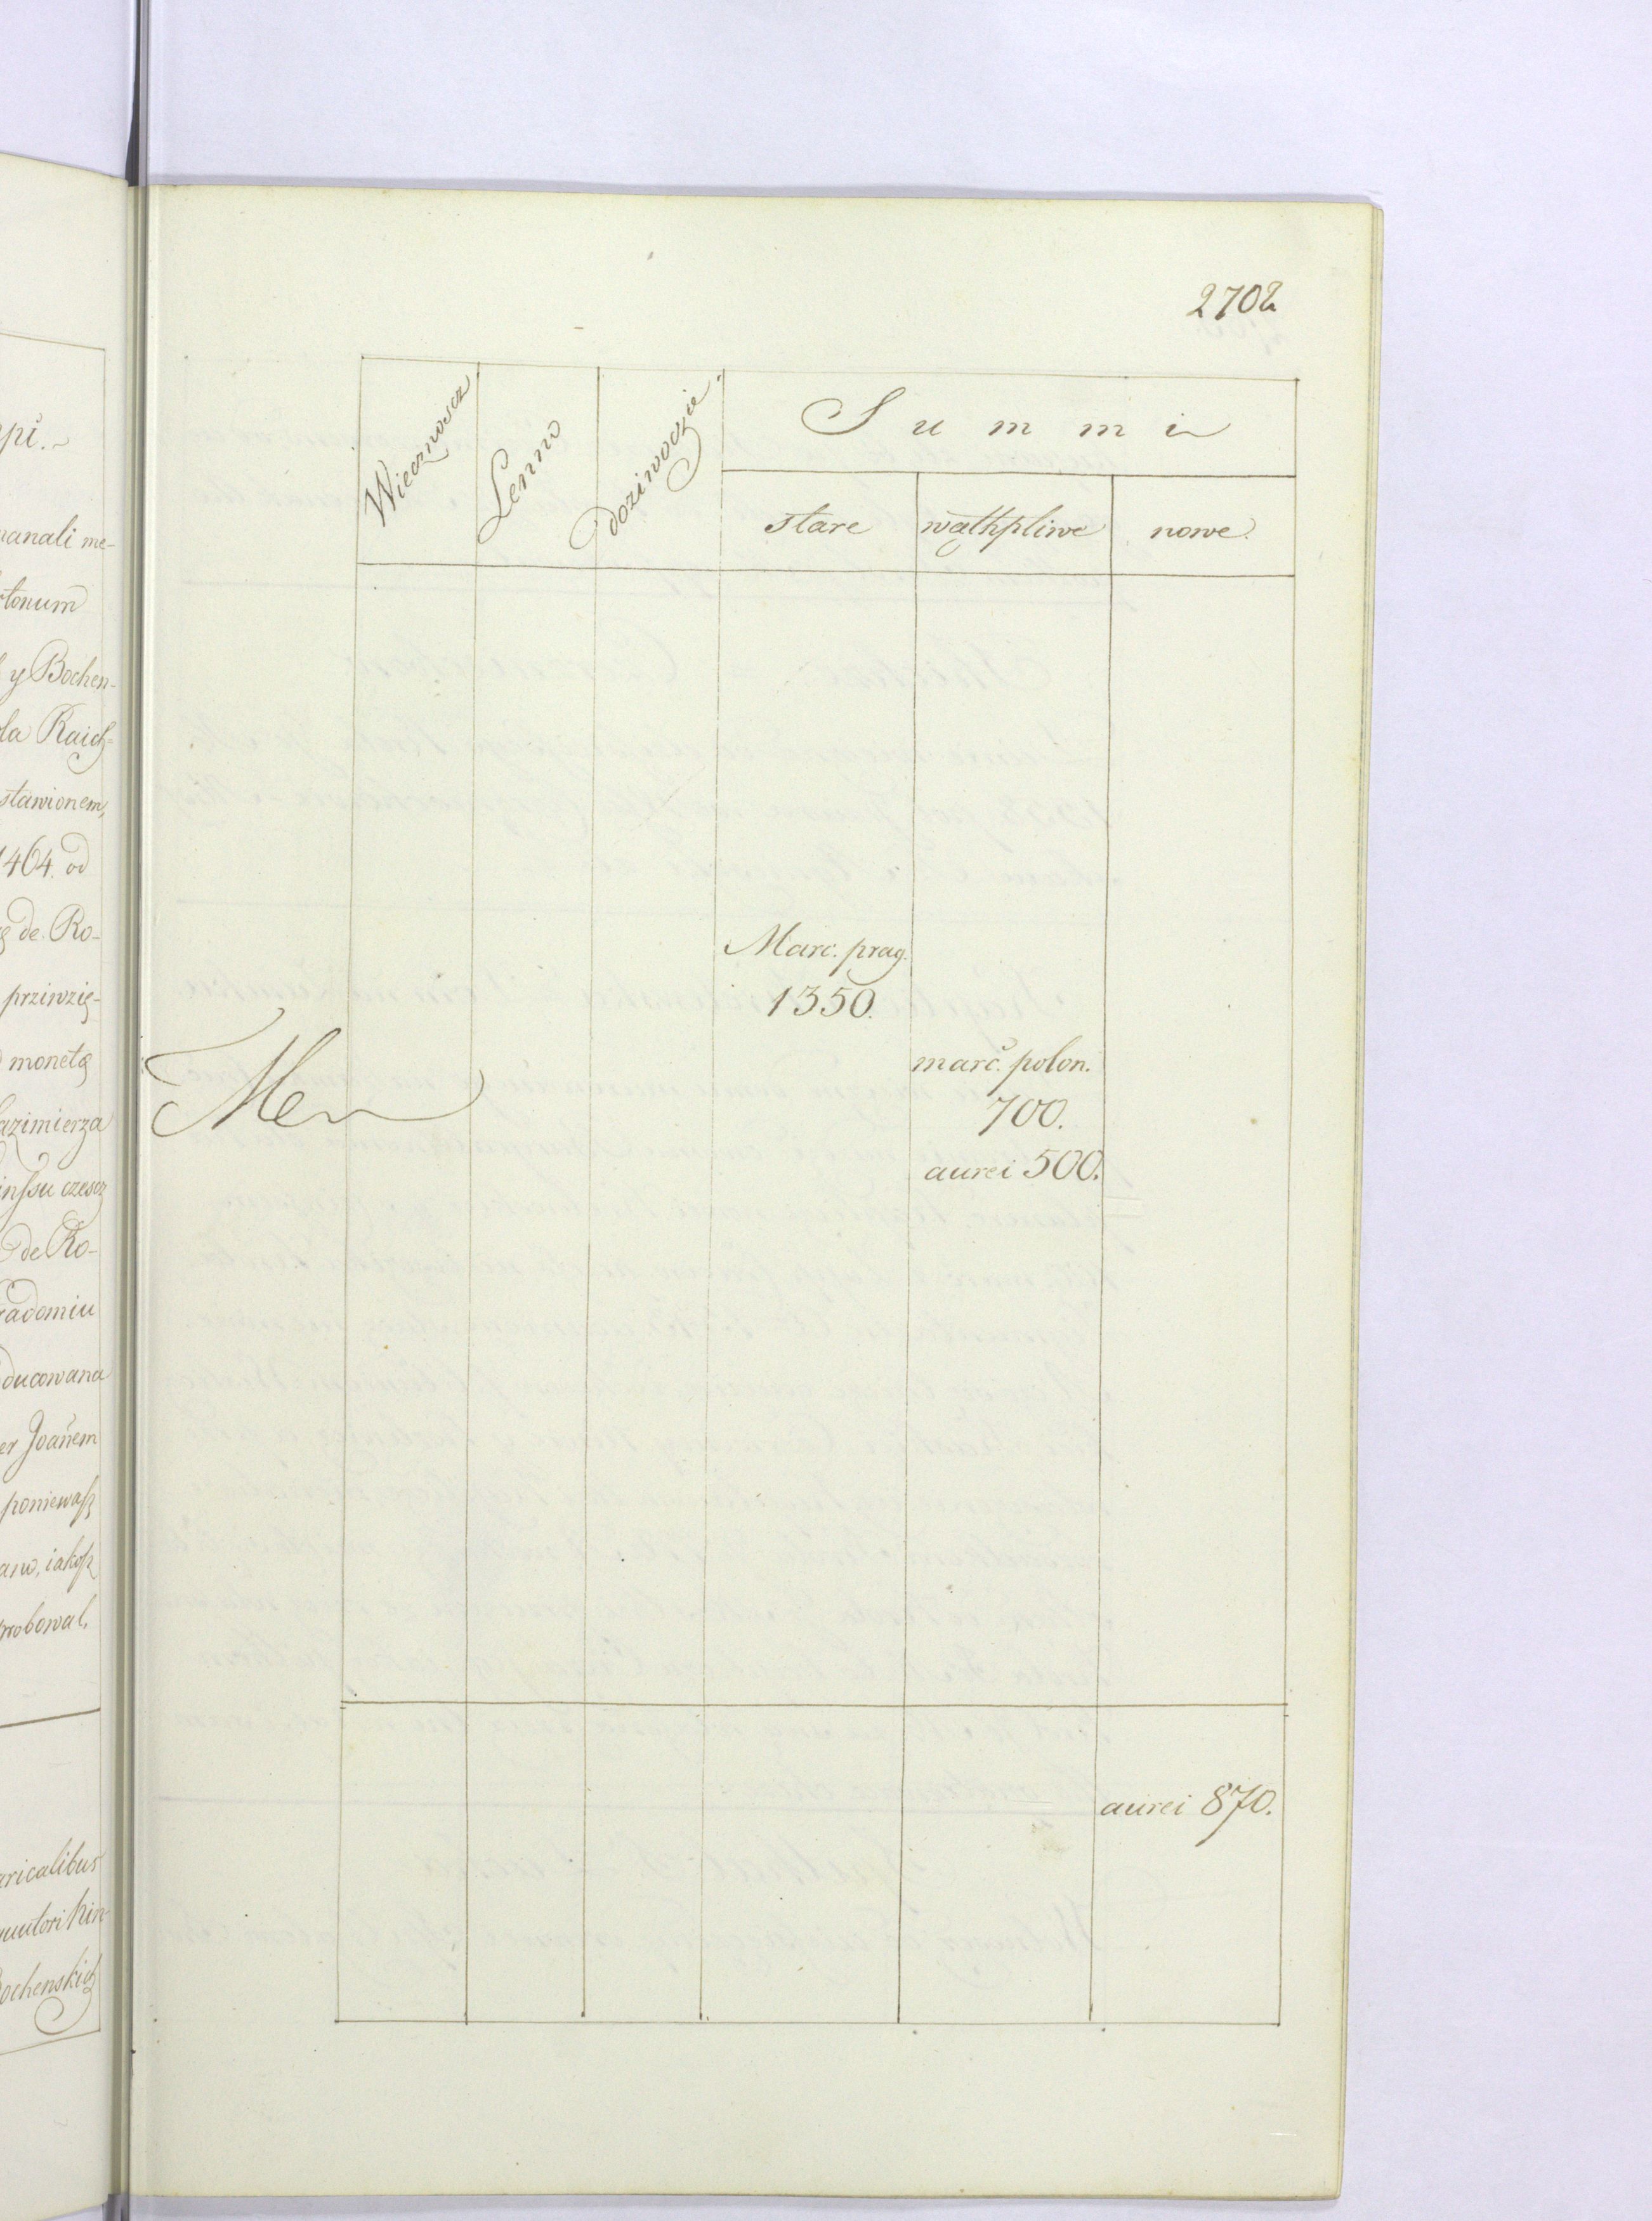 pĩ.
manali me-
tonum
y Bochen-
la Raich-
stawionem,
1464. od
de Ro-
przivzię-
monetą
azimierza
inssu czescz
de Ro-
radomiu
ducowana
er Joañem
poniewasz
aw, iakosz
probowal.
aricalibus
uutori hin-
Bochenskich
2702
Wiecznoscz
Lenno
Doziwoczie.
Summi
stare
wąthpliwe
nowe.
Marc. prag.
1350.
Men
marc̃. polon.
700.
aurei 500.
aurei 870.